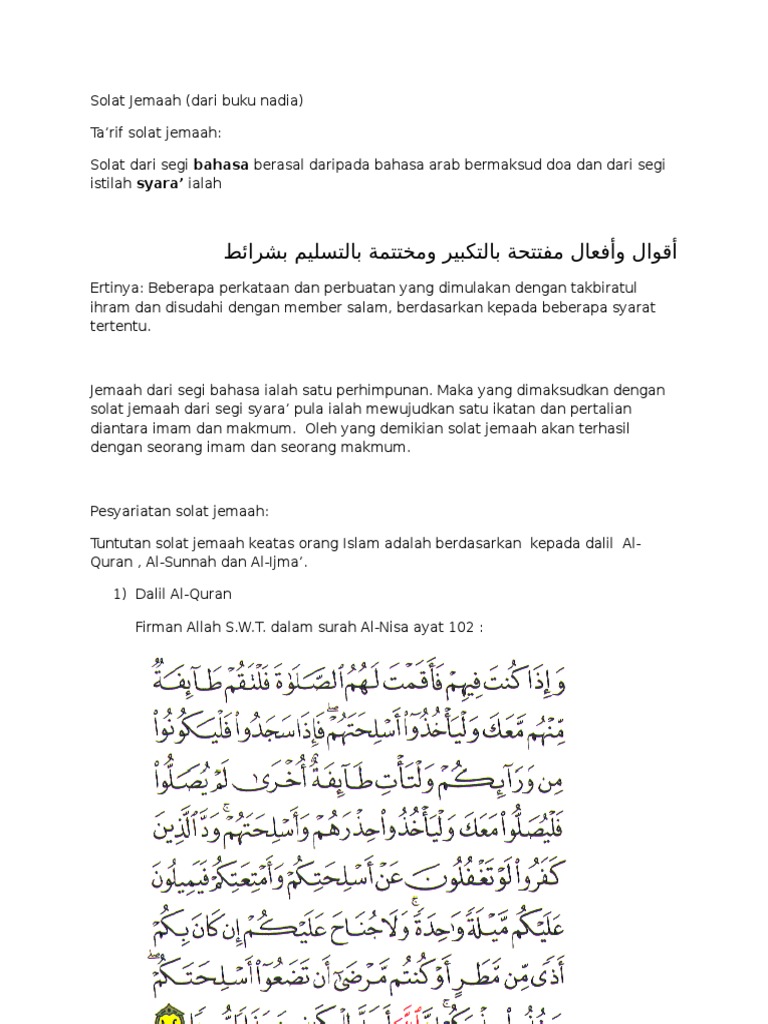 Solat Jemaah (dari buku nadia)
Ta’rif solat jemaah:
Solat dari segi bahasa berasal daripada bahasa arab bermaksud doa dan dari segi
istilah syara’ ialah
أقوال وأفعال مفتتحة بالتكبير ومختتمة بالتسليم بشرائط
Ertinya: Beberapa perkataan dan perbuatan yang dimulakan dengan takbiratul
ihram dan disudahi dengan member salam, berdasarkan kepada beberapa syarat
tertentu.
Jemaah dari segi bahasa ialah satu perhimpunan. Maka yang dimaksudkan dengan
solat jemaah dari segi syara’ pula ialah mewujudkan satu ikatan dan pertalian
diantara imam dan makmum.  Oleh yang demikian solat jemaah akan terhasil
dengan seorang imam dan seorang makmum.
Pesyariatan solat jemaah:
Tuntutan solat jemaah keatas orang Islam adalah berdasarkan  kepada dalil  Al-
Quran , Al-Sunnah dan Al-Ijma’.
1) Dalil Al-Quran
Firman Allah S.W.T. dalam surah Al-Nisa ayat 102 :
وَإِذَا كُنتَ فِيهِمْ فَأَقَمْتَ لَهُمُ ٱلصَّلَوٰةَ فَلْتَقُمْ طَآئِفَةٌ
مِّنْهُم مَّعَكَ وَلْيَأْخُذُوٓا۟ أَسْلِحَتَهُمْۖ فَإِذَا سَجَدُوا۟ فَلْيَكُونُوا۟
مِن وَرَآئِكُمْ وَلْتَأْتِ طَآئِفَةٌ أُخْرَىٰ لَمْ يُصَلُّوا۟
فَلْيُصَلُّوا۟ مَعَكَ وَلْيَأْخُذُوا۟ حِذْرَهُمْ وَأَسْلِحَتَهُمْۗ وَدَّ ٱلَّذِينَ
كَفَرُوا۟ لَوْ تَغْفُلُونَ عَنْ أَسْلِحَتِكُمْ وَأَمْتِعَتِكُمْ فَيَمِيلُونَ
عَلَيْكُم مَّيْلَةً وَٰحِدَةًۚ وَلَا جُنَاحَ عَلَيْكُمْ إِن كَانَ بِكُمْ
أَذًى مِّن مَّطَرٍ أَوْ كُنتُم مَّرْضَىٰٓ أَن تَضَعُوٓا۟ أَسْلِحَتَكُمْۖ